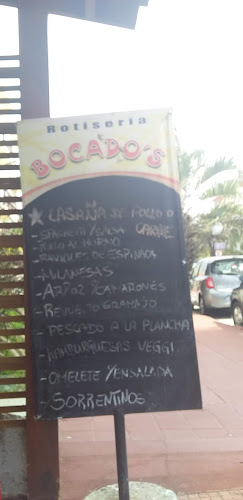 Rotiseria
BOCADO'S
LASAÑA DE POLLO O
CARNE
- SPAGHETI Y/SALSA
- POLLO AL HORNO
- PANQUES DE ESPINACA
- MILANESAS
- ARROZ Y/CAMARONES
- REVUELTO GRAMAJO
- PESCADO A LA PLANCHA
- HAMBURGUESAS VEGGI
- OMELETE Y/ENSALADA
- SORRENTINOS